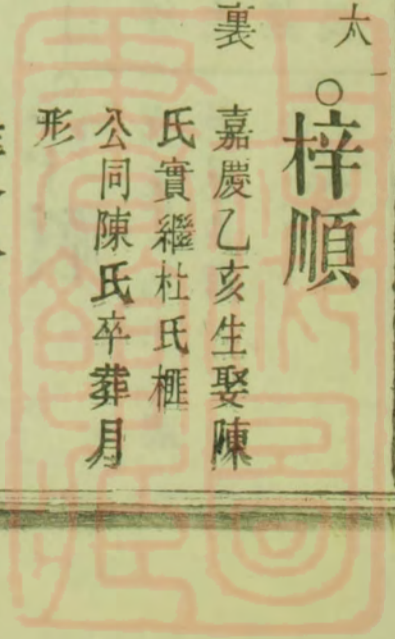 太
○梓順
裏
嘉慶乙亥生娶陳
氏實繼杜氏榧
公同陳氏卒葬月
形